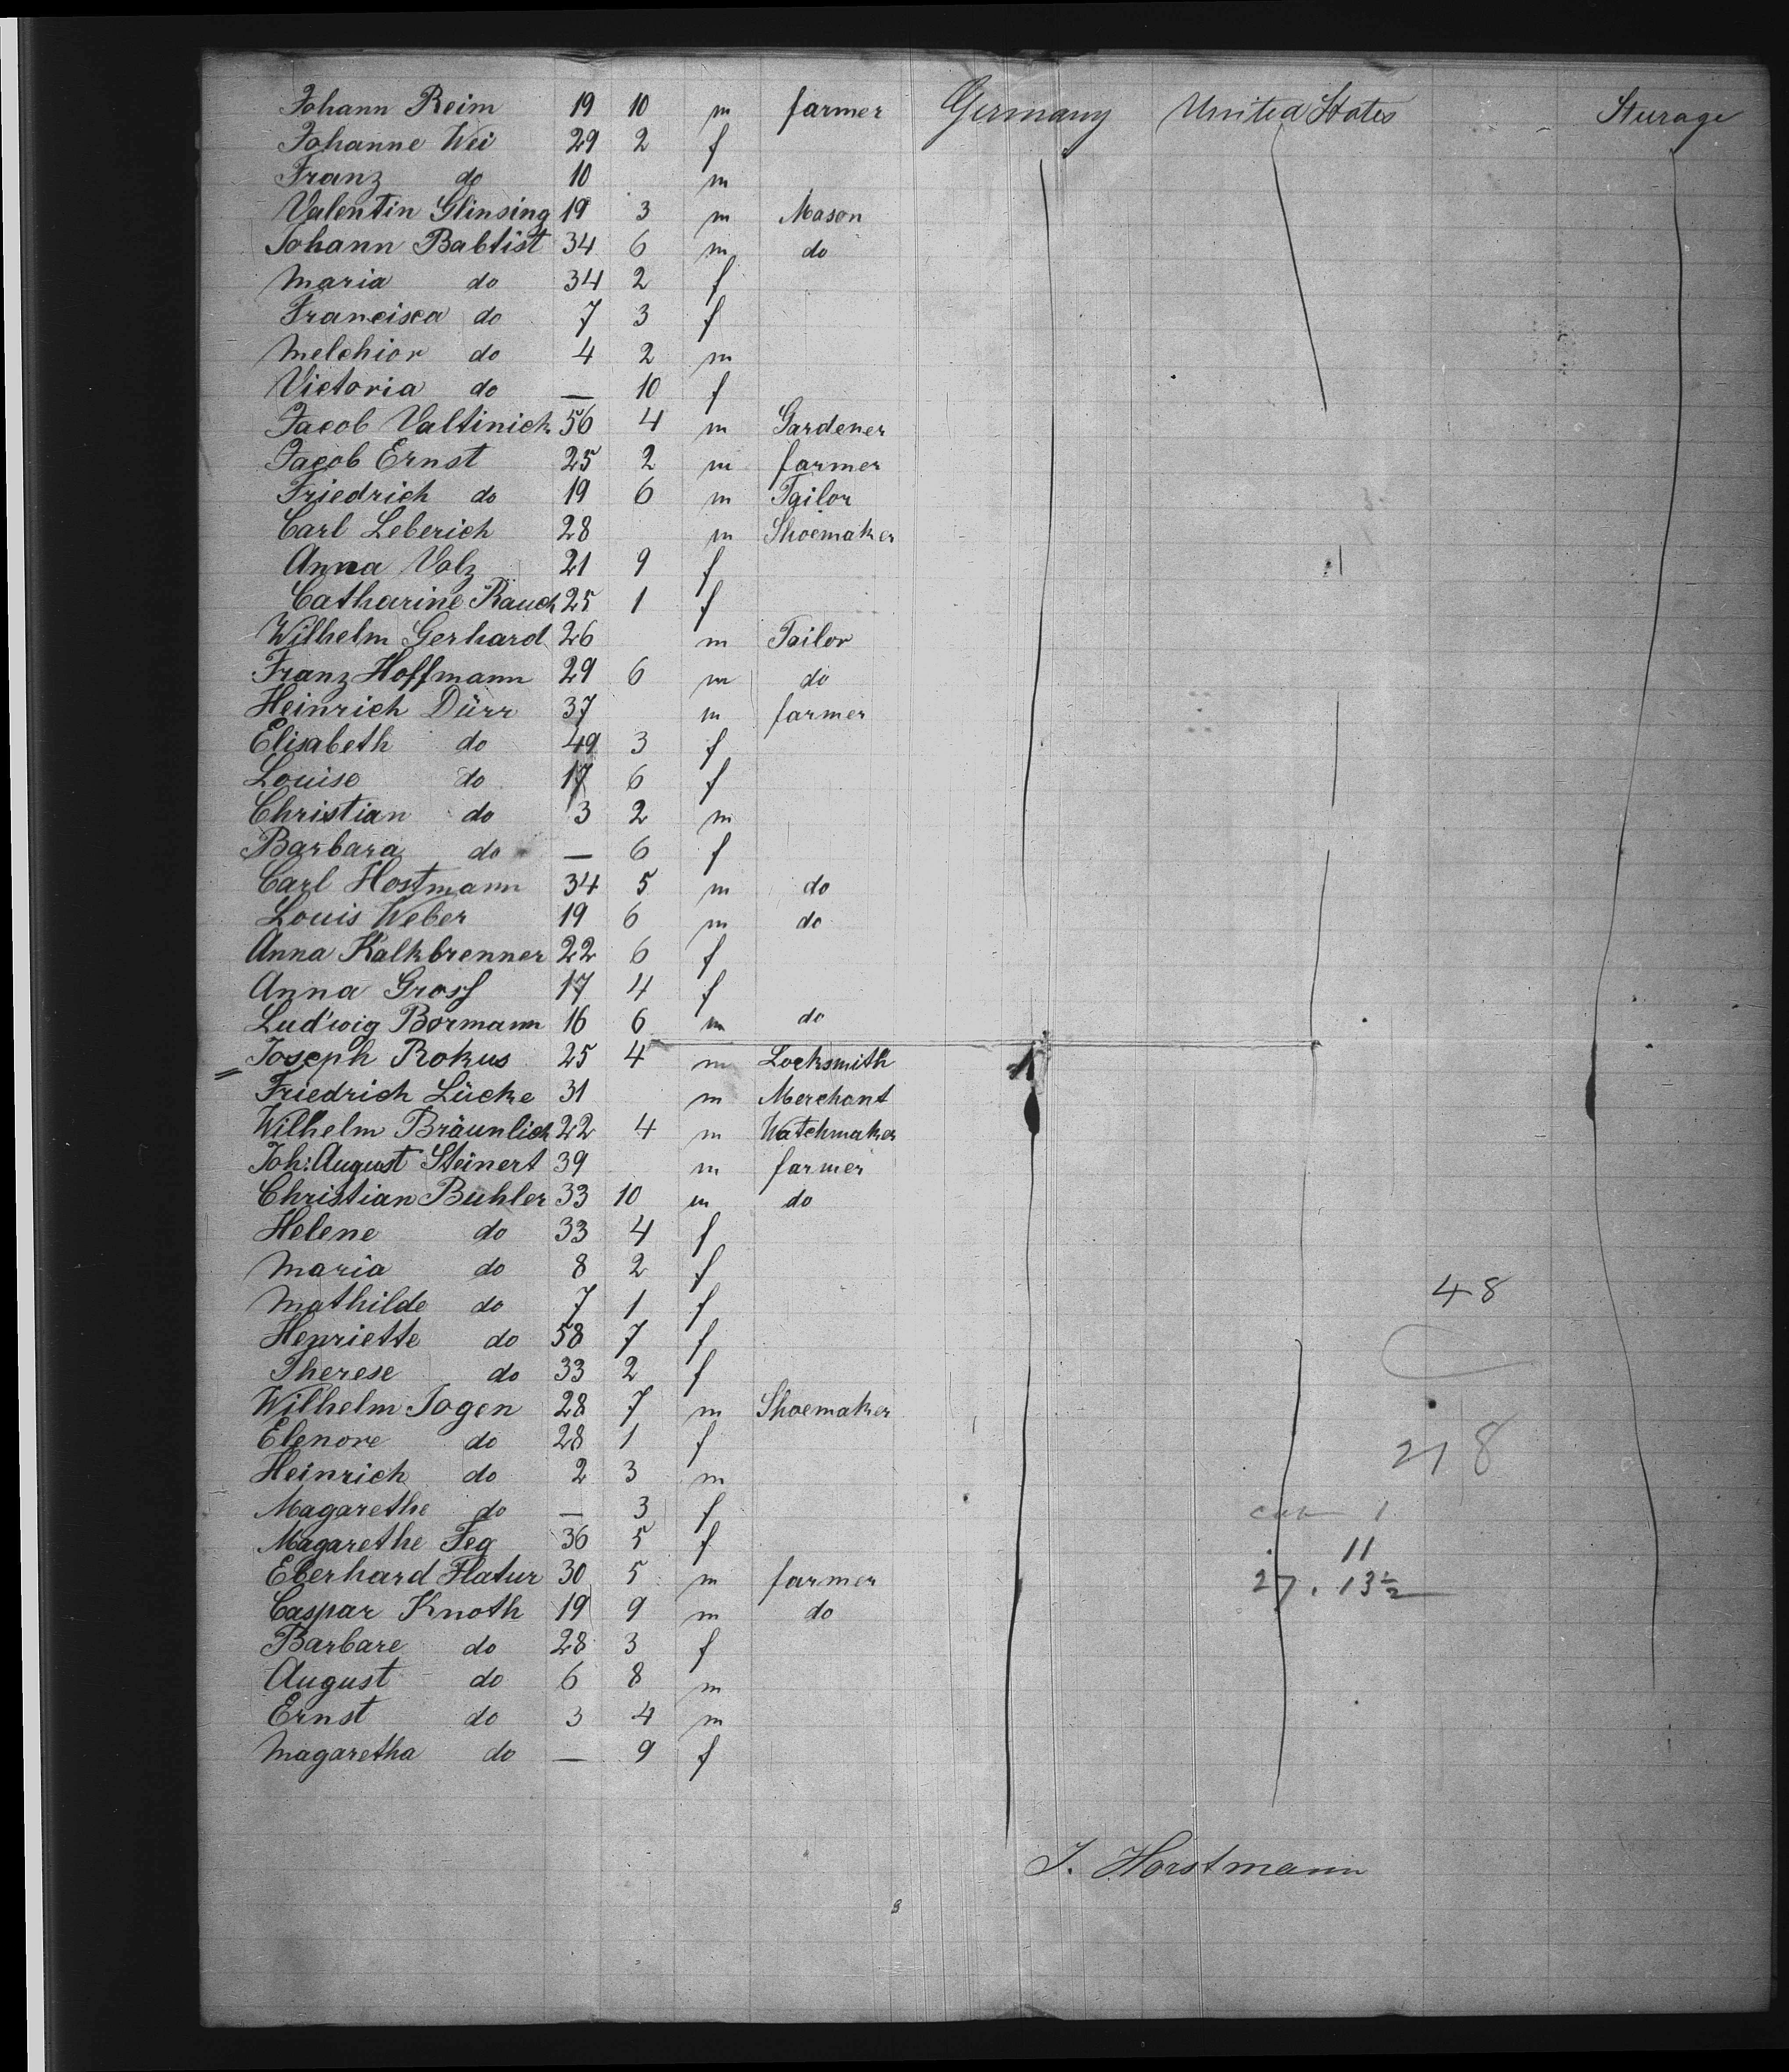 Johann Reim 19 10 m farmer Germany United States Sturage
Johanne Wei 29 2 f
Franz do 10 m
Valentin Glinsing 19 3 m Mason
Johann Babtist 34 6 m do
Maria do 34 2 f
Francisca do 7 3 f
Melchior do 4 2 m
Victoria do — 10 f
Jacob Valtinick 56 4 m Gardener
Jacob Ernst 25 2 m farmer
Friedrich do 19 6 m Tailor
Carl Leberich 28 m Shoemaker
Anna Volz 21 9 f
Catharine Rauch 25 1 f
Wilhelm Gerhard 26 m Tailor
Franz Hoffmann 29 6 m do
Heinrich Dürr 37 m farmer
Elisabeth do 49 3 f
Louise do 17 6 f
Christian do 3 2 m
Barbara do — 6 f
Carl Hostmann 34 5 m do
Louis Weber 19 6 m do
Anna Kalkbrenner 22 6 f
Anna Gross 17 4 f
Ludwig Bormann 16 6 m do
Joseph Rokus 25 4 m Locksmith
Friedrich Lücke 31 m Merchant
Wilhelm Bräunlich 22 4 m Watchmaker
Joh: August Steinert 39 m farmer
Christian Buhler 33 10 m do
Helene do 33 4 f
Maria do 8 2 f
Mathilde do 7 1 f 48
Henriette do 58 7 f
Therese do 33 2 f
Wilhelm Jogen 28 7 m Shoemaker
Elenore do 28 1 f 218
Heinrich do 2 3 m
Magarethe do — 3 f 1
Magarethe Feg 36 5 f 11
Eberhard Flatur 30 5 m farmer 27. 13½
Caspar Knoth 19 9 m do
Barbare do 28 3 f
August do 6 8 m
Ernst do 3 4 m
Magaretha do — 9 f
J. Horstmann